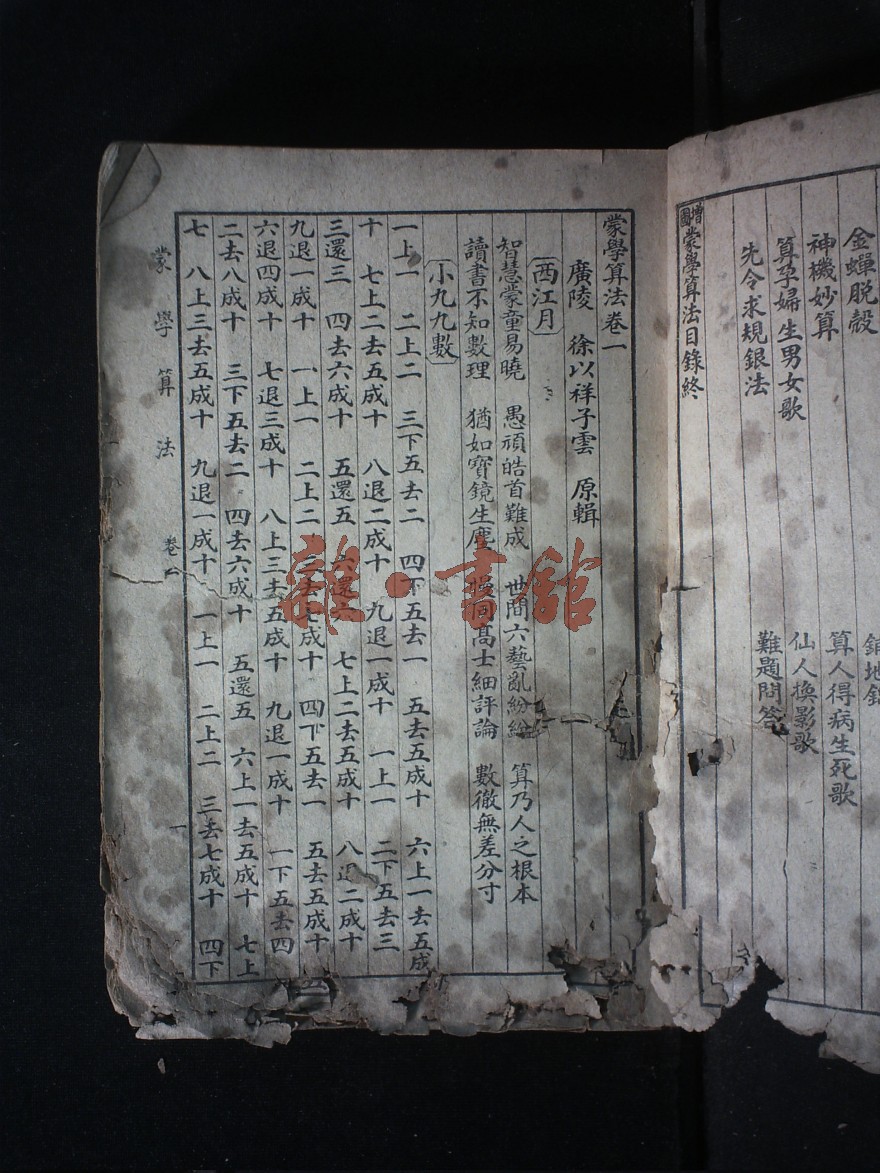 金蟬脫殼
神機妙算
算人得病生死歌
算孕婦生男女歌
仙人換影歌
先令求規銀法
難題問答
增圖蒙學算法目錄終
蒙學算法卷一
廣陵 徐以祥子雲 原輯
西江月
智慧蒙童易曉 愚頑皓首難成 世間六藝亂紛紛 算乃人之根本
讀書不知數理 猶如寶鏡生塵 同高士細評論 數徹無差分寸
小九九數
一上一 二上二 三下五去二 四下五去一 五去五成十 六上一去五成
十 七上二去五成十 八退二成十 九退一成十 一上一 二下五去三
三還三 四去六成十 五還五 六還六 七上二去五成十 八退二成十
九退一成十 一上一 二上二 三去七成十 四下五去一 五去五成十
六退四成十 七退三成十 八上三去五成十 九退一成十 一下五去四
二去八成十 三下五去二 四去六成十 五還五 六上一去五成十 七上
七 八上三去五成十 九退一成十 一上一 二上二 三去七成十 四下
蒙學算法 卷一 一
雜·書館